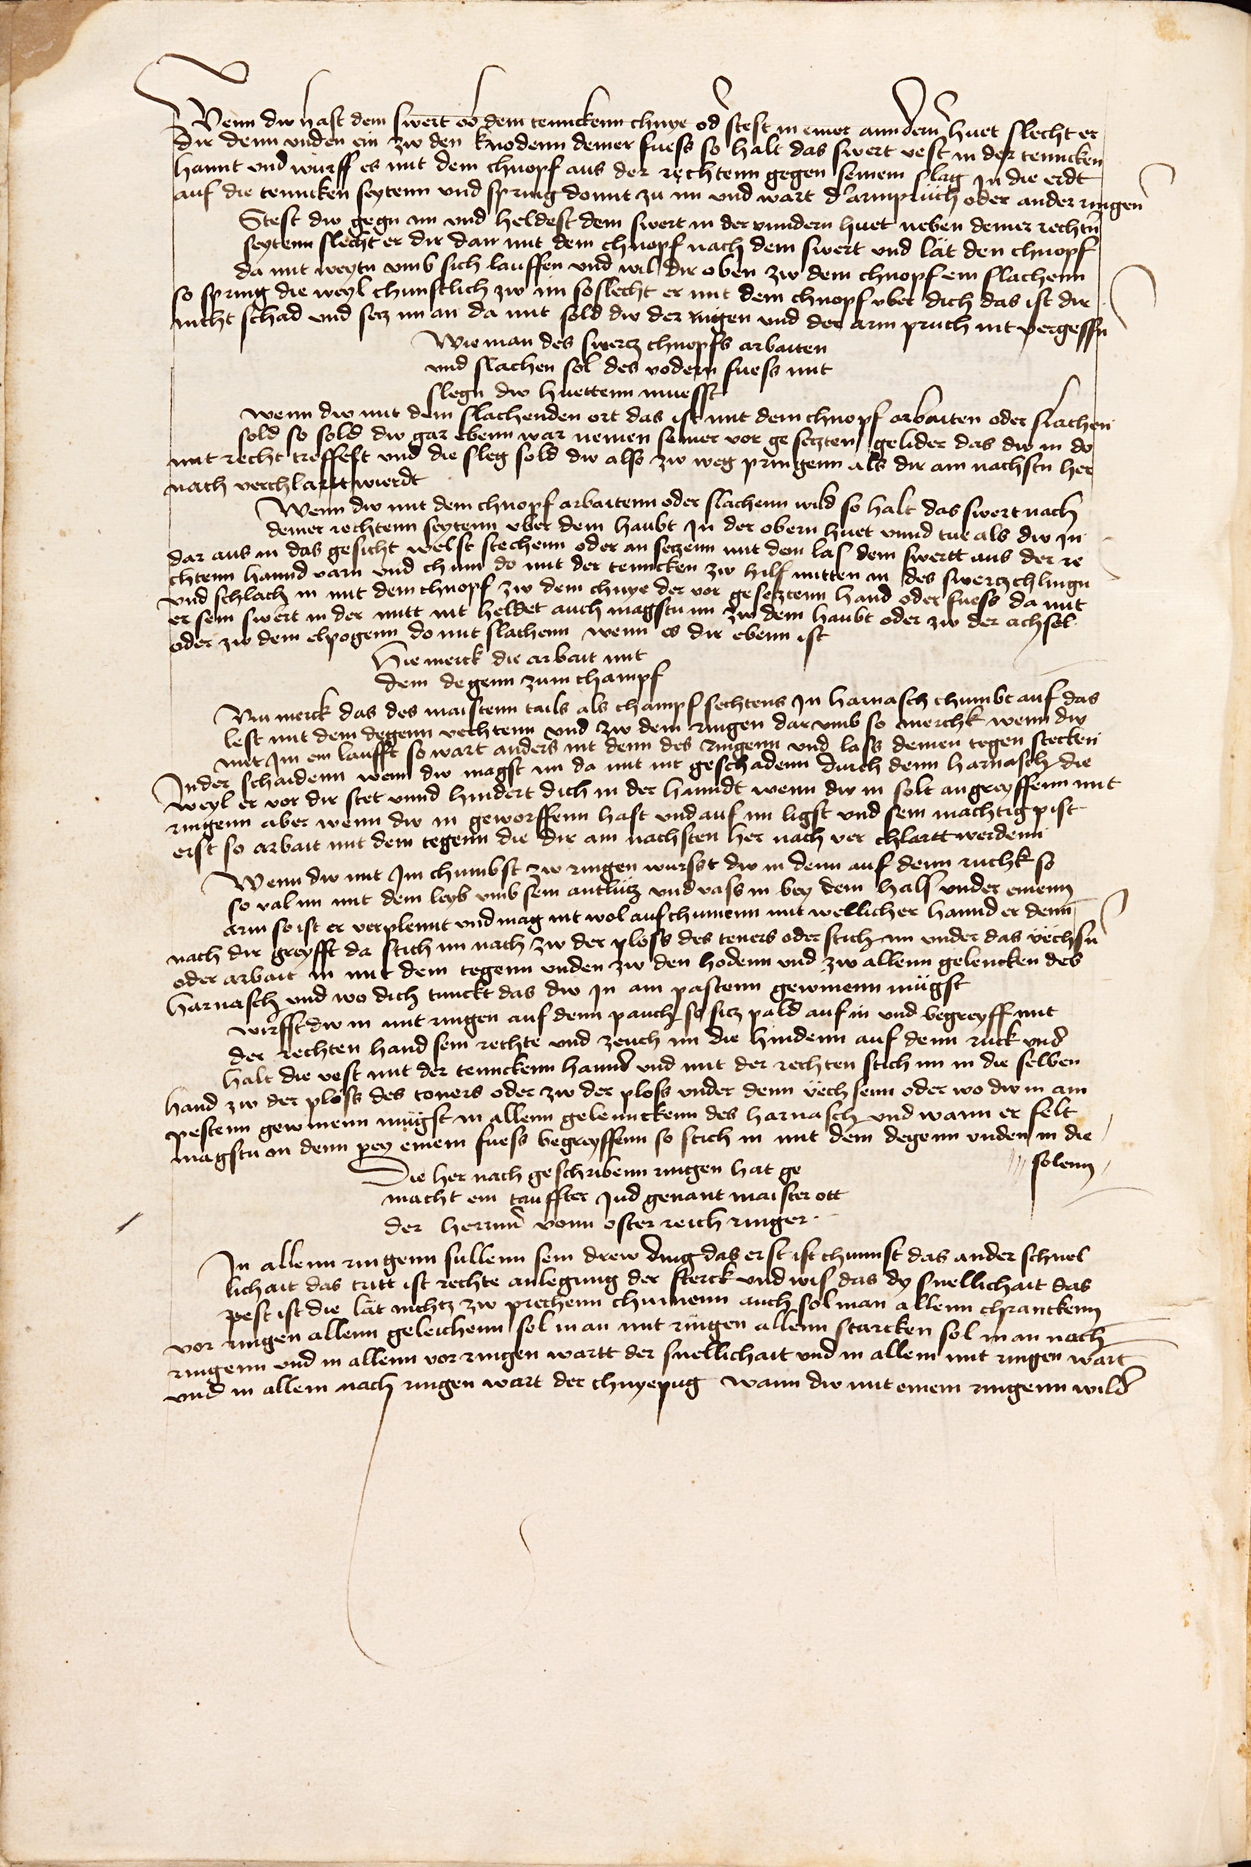 Wenn dw hast dem swert ob dem tennckenn chnye oder stest in einer anndern huet slecht er
dir denn vnden ein zw den knodenn deiner fuess so halt das swert vest in der tenncken
hannt vnd würff es mit dem chnopf aus der rechtenn gegen seinem slag in die erdt
auf die tenncken seytenn vnd spring domit zu im vnd wart d armprüch oder ander ringen
Stest dw gegn im vnd heldest dein swert in der vnndern huet neben deiner rechtn
seytenn slecht er dir dan mit dem chnopf nach dem swert vnd lät den chnopf
da mit weytn vmb sich lauffen vnd wil dir oben zw dem chnopf ein slachenn
so spring die weyl chunstlich zw im so slecht er mit dem chnopf vber dich das ist dir
nicht schad vnd secz im an da mit sold dw der ringen vnd der arm pruch nit vergessn
Wie man des swercz chnopfs arbaiten
vnd slachen sol des vodern fuess mit
slegn dw huettenn muesst
wenn dw mit dem slachenden ort das ist mit dem chnopf arbaiten oder slachen
sold so sold dw gar ebenn war nemen seiner vor ge seczten gelider das dw in do
mit recht treffest vnd die sleg sold dw also zw weg pringenn als dir am nachstn her
nach verchlartt wierdt
Wenn dw mit dem chnopf arbaitenn oder slachenn wild so halt das swert nach
deiner rechtenn seytenn vber dem haubt In der obern huet vnnd tue als dw In
dar aus in das gesicht welst stechenn oder an seczenn mit dem las dein swertt aus der re
chtenn hannd varn vnd chum do mit der tenncken zw hilf mitten in des swerczchlingn
vnd schlach in mit dem chnopf zw dem chnye der vor geseczten hand oder fuess da mit
er sein swert in der mitt nit heldet auch magstu im zw dem haubt oder zw der achsel
oder zw dem elpogenn do mit slachenn wenn es dir ebenn ist
Hie merck die arbait mit
dem degenn zum champf
Nu merck das des maistenn tails als champf fechtens In harnasch chumbt auf das
lest mit dem degenn vechtenn vnd zw dem ringen dar vmb so merchk wenn dw
mit Im ein laufft so wart anders nit denn des ringenn vnd lass deinen tegen stecken
In der schaidenn wenn dw magst im da mit nit geschadenn durch denn harnasch die
weyl er vor dir stet vnnd hindert dich in der hanndt wenn dw in solt angreyffenn mit
ringenn aber wenn dw in geworffenn hast vnd auf im ligst vnd sein mächtig pist
erst so arbait mit dem tegenn die dir am nachsten her nach ver chlartt werdenn
Wenn dw mit Im chumbst zw ringen wurfst dw in denn auf denn ruchk so
so val im mit dem leyb vmb sein antlütz vnd vass in bey dem hals vnder einem
arm so ist er verplennt vnd mag nit wol auf chumenn mit wellicher hannd er denn
nach dir greyfft da stich im nach zw der ploss des teners oder stich im vnder das vëchsn
oder arbait in mit dem tegenn vnden zw den hodenn vnd zw allenn gelencken des
harnasch vnd wo dich tunckt das dw in am pastenn gewinenn mügst
wirffst dw in mit ringen auf denn pauch so sicz pald auf in vnd begreyff mit
der rechten hand sein rechte vnd zeuch im die hindenn auf denn ruck vnd
halt die vest mit der tennckenn hannd vnd mit der rechten stich im in die selben
hand zw der ploss des teners oder zw der ploss vnder denn vëch senn oder wo dw in am
pestenn gewinenn mügst in allenn gelennckenn des harnasch vnd wann er felt
magstu in denn pey einem fuess begreyffenn so stich in mit dem degenn vnden in die
solenn
Die her nach geschribenn ringen hat ge
macht ein tauffter Jud genant maister ott
der herrnn vonn osterreich ringer
In allenn ringenn sullenn sein drew ding das erst ist chunnst das ander schnel
lichait das tritt ist rechte anlegung der sterck vnd wis das dy snellichait das
pest ist die lät nichtz zw prechenn chumenn auch sol man allenn chranckenn
vor ringen allenn geleichenn sol man mit ringen allenn starcken sol man nach
ringenn vnd in allenn vor ringen wartt der snellichait vnd in allem mit ringen wart
vnd in allem nach ringen wart der chnyepug wann dw mit einem ringenn wild